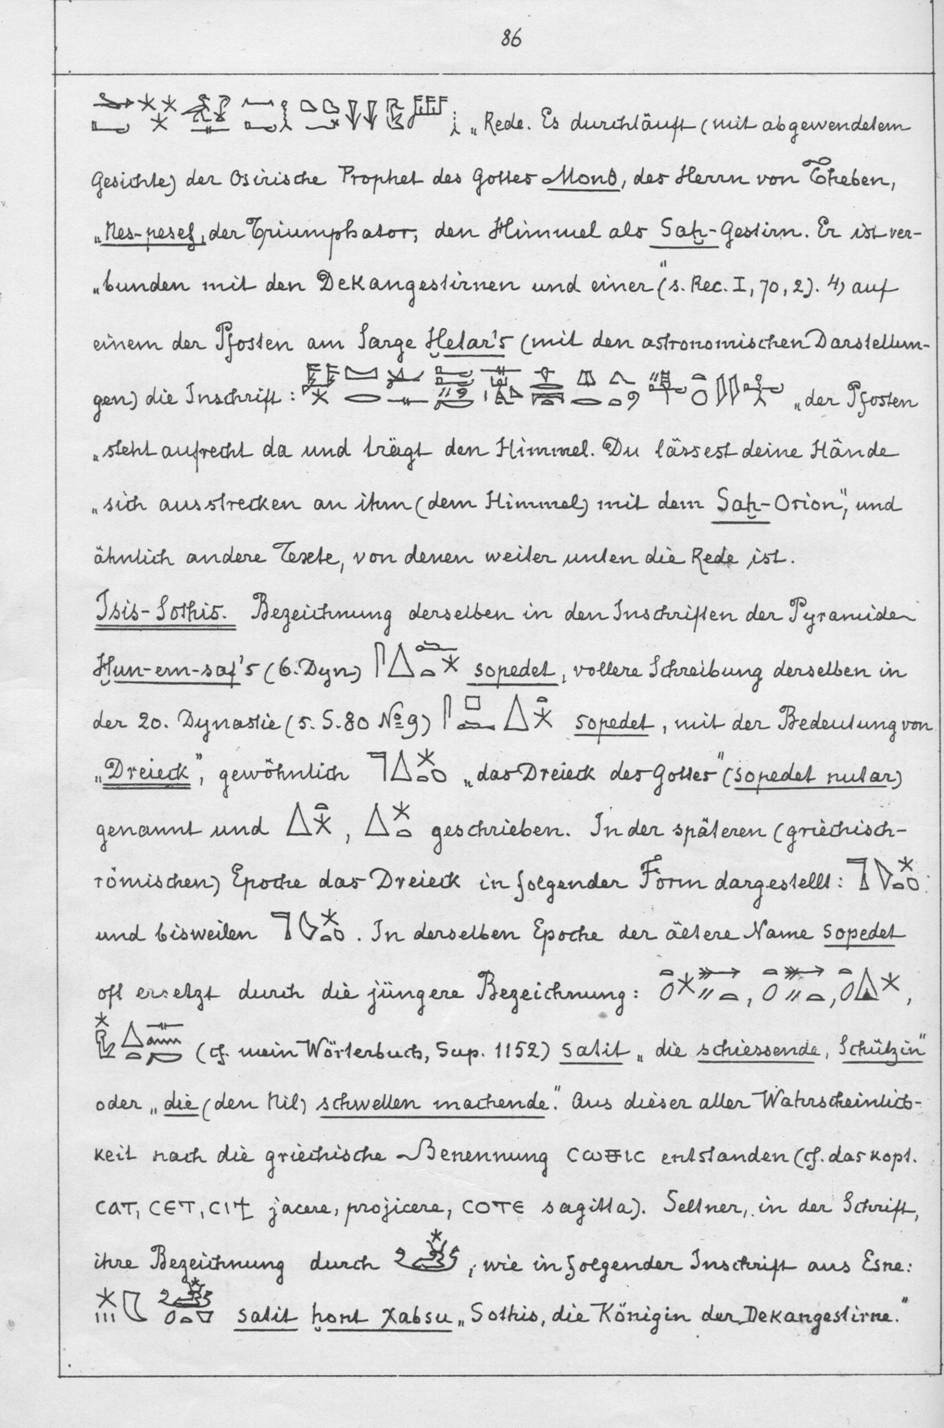 86
„Rede. Es durchläuft (mit abgewendetem
Gesichte) der Osirische Prophet des Gottes Mond, des Herrn von Theben,
„Nes-pesef, der Triumphator, den Himmel als Saḥ-Gestirn. Er ist ver-
„bunden mit den Dekangestirnen und einer“ (s. Rec. I, 70, 2). 4, auf
einem der Pfosten am Sarge Ḥetar's (mit den astronomischen Darstellun-
gen) die Inschrift: „der Pfosten
„steht aufrecht da und trägt den Himmel. Du lässest deine Hände
„sich ausstrecken an ihm (dem Himmel) mit dem Saḥ-Orion“, und
ähnlich andere Texte, von denen weiter unten die Rede ist.
Isis-Sothis. Bezeichnung derselben in den Inschriften der Pyramide
Ḥun-em-saf's (6. Dyn) sopedet, vollere Schreibung derselben in
der 20. Dynastie (s. S. 80 No 9) sopedet, mit der Bedeutung von
„Dreieck“, gewöhnlich „das Dreieck des Gottes“ (sopedet nutar)
genannt und , geschrieben. In der späteren (griechisch-
römischen) Epoche das Dreieck in folgender Form dargestellt:
und bisweilen . In derselben Epoche der ältere Name sopedet
oft ersetzt durch die jüngere Bezeichnung: , , ,
(cf. mein Wörterbuch, Sup. 1152) satit „die schiessende, Schützin“
oder „die (den Nil) schwellen machende“. Aus dieser aller Wahrscheinlich-
keit nach die griechische Benennung entstanden (cf. das kopt.
ⲤⲀⲦ, ⲤⲈⲦ, ⲤⲒϮ jacere, projicere, ⲤⲞⲦⲈ sagitta). Seltner, in der Schrift,
ihre Bezeichnung durch , wie in folgender Inschrift aus Esne:
satit ḥont χabsu „Sothis, die Königin der Dekangestirne.“